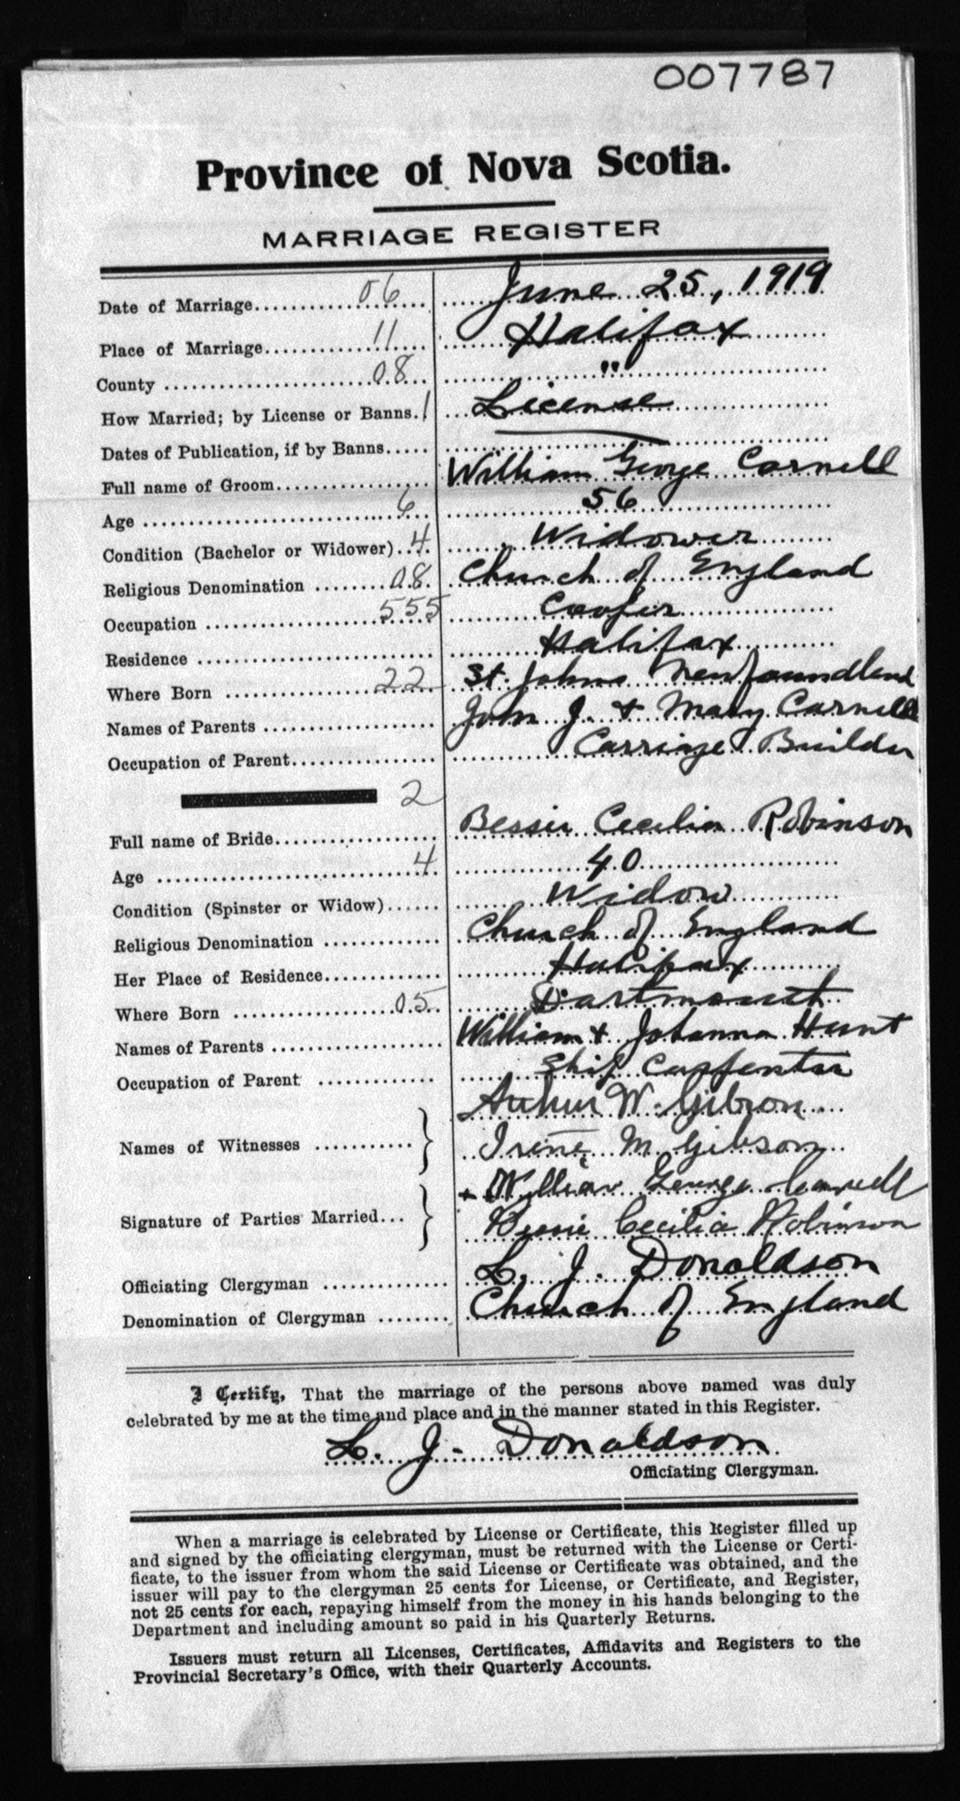 007787
Province of Nova Scotia.
MARRIAGE REGISTER
Date of Marriage 06 June 25, 1919
Place of Marriage 11 Halifax
County 08 "
How Married; by License or Banns. 1 License
Dates of Publication, if by Banns
Full name of Groom William George Carnell
Age 6 56
Condition (Bachelor or Widower) 4 Widower
Religious Denomination 08 Church of England
Occupation 555 Cooper
Residence Halifax
Where Born 22 St. Johns Newfoundland
Names of Parents John J. + Mary Carnell
Occupation of Parent Carriage Builder
2
Full name of Bride Bessie Cecilia Robinson
Age 4 40
Condition (Spinster or Widow) Widow
Religious Denomination Church of England
Her Place of Residence Halifax
Where Born 05 Dartmouth
Names of Parents William + Johanna Hunt
Occupation of Parent Ship Carpenter
Arthur W. Gibson
Names of Witnesses } Irene M. Gibson
+ William George Carnell
Signature of Parties Married... } Bessie Cecilia Robinson
Officiating Clergyman L. J. Donaldson
Denomination of Clergyman Church of England
I Certify, That the marriage of the persons above named was duly
celebrated by me at the time and place and in the manner stated in this Register.
L. J. Donaldson
Officiating Clergyman.
When a marriage is celebrated by License or Certificate, this Register filled up
and signed by the officiating clergyman, must be returned with the License or Certi-
ficate, to the issuer from whom the said License or Certificate was obtained, and the
issuer will pay to the clergyman 25 cents for License, or Certificate, and Register,
not 25 cents for each, repaying himself from the money in his hands belonging to the
Department and including amount so paid in his Quarterly Returns.
Issuers must return all Licenses, Certificates, Affidavits and Registers to the
Provincial Secretary's Office, with their Quarterly Accounts.